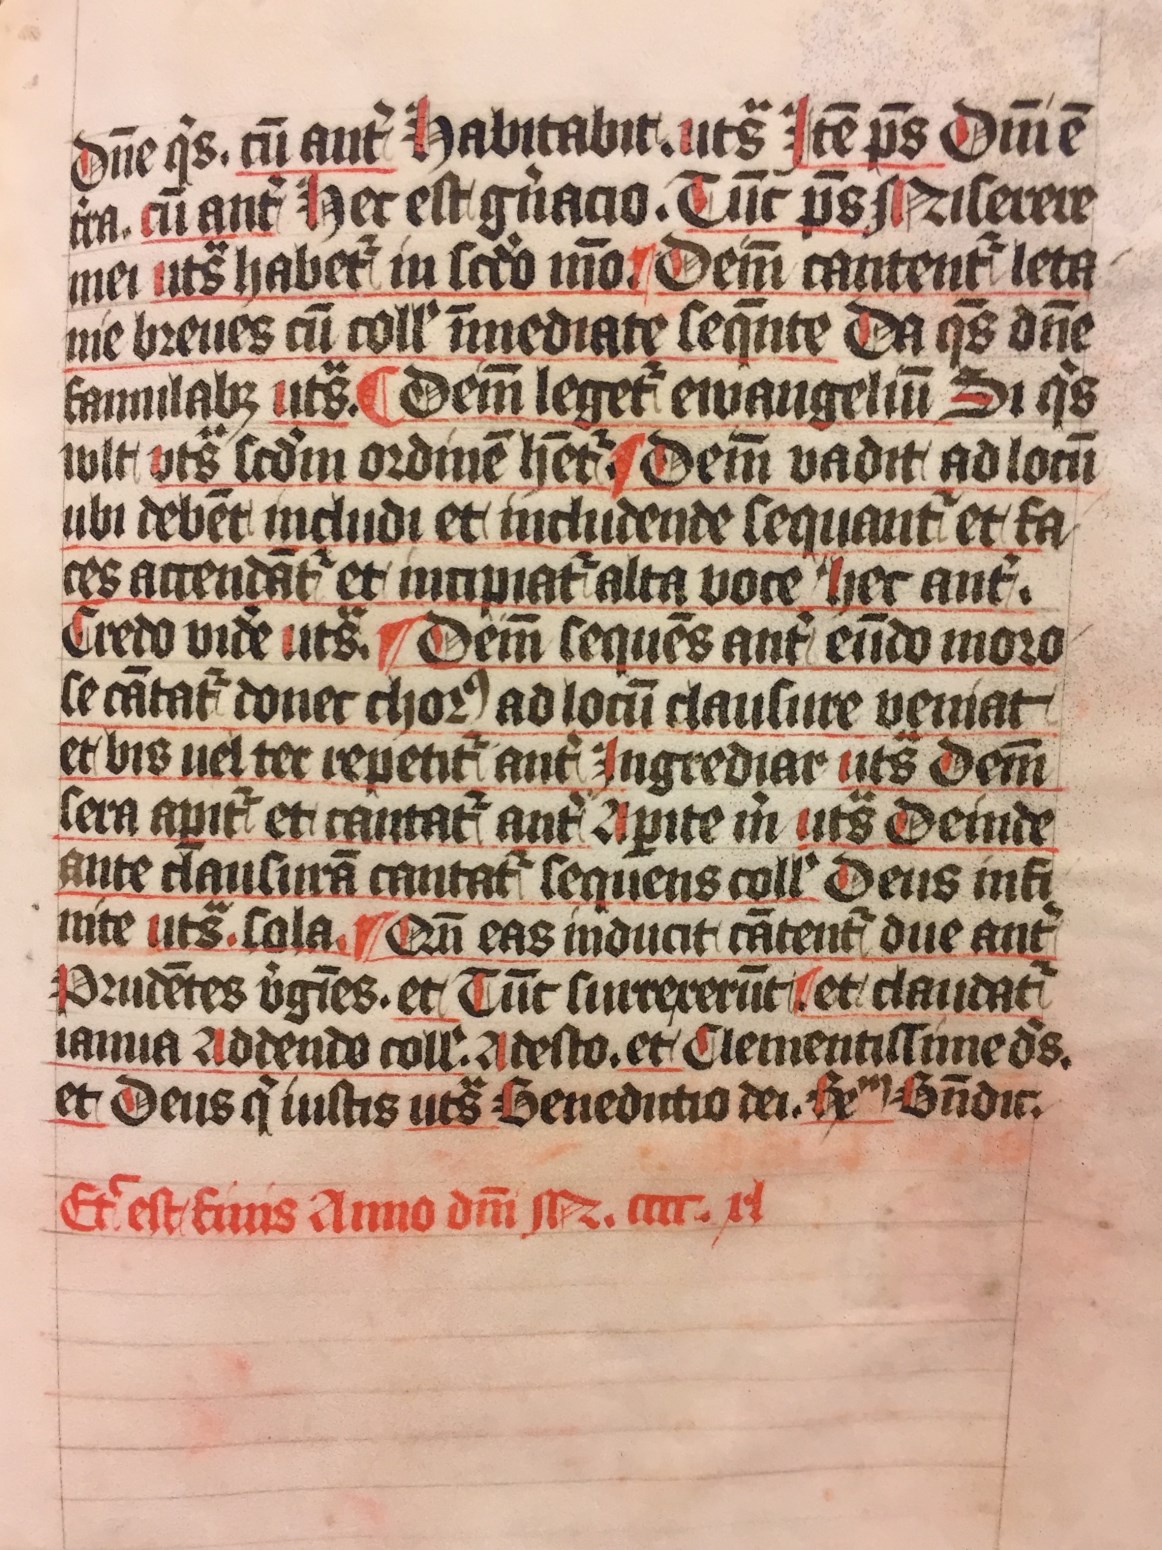 Dn̄e q̄s. cū ant̉ Habitabit. uts̄ Itē ps̄ Dn̄i ē
tr̄a. cū ant̉ Hec est gn̄acio. Tūc ps̄ Miserere
mei uts̄ habet᷑ in scd̄o mō. ¶ Dem̄ cantent᷑ leta
nie breues cū coll̉ īmediate seqn̄te Da qs̄ dn̄e
famulabꝫ uts̄. ¶ Dem̄ leget᷑ ewangeliū Si q̄s
wlt vts̄ scd̄m ordinē hēt᷑. ¶ Dem̄ vadit ad locū
ubi debēt includi et includende sequant᷑ et fa
ces accendāt᷑ et incipiat᷑ alta voce hec ant̉.
Credo videre uts̄. ¶ Dem̄ sequēs ant̉ eūdo moro
se cātat᷑ donec chorꝰ ad locū clausure veniat
et bis uel ter repetit᷑ ant̉ Ingrediar uts̄ Dem̄
sera apit᷑ et cantat᷑ ant̉ Aꝑite m̄ uts̄ Deinde
ante clausurā cantat᷑ sequens coll̉ Deus infi
nite uts̄. sola. ¶ Qn̄ eas inducit cātent᷑ due ant̉
Prudētes v̉gīes. et Tūc surrexerūt et claudat᷑
ianua Addendo coll̉. Adesto. et Clementissime ds̄.
et Deus q̄ iustis uts̄ Benedictio dei. Bn̄dic.
Et᷑ est finis Anno dn̄i M. cccc.